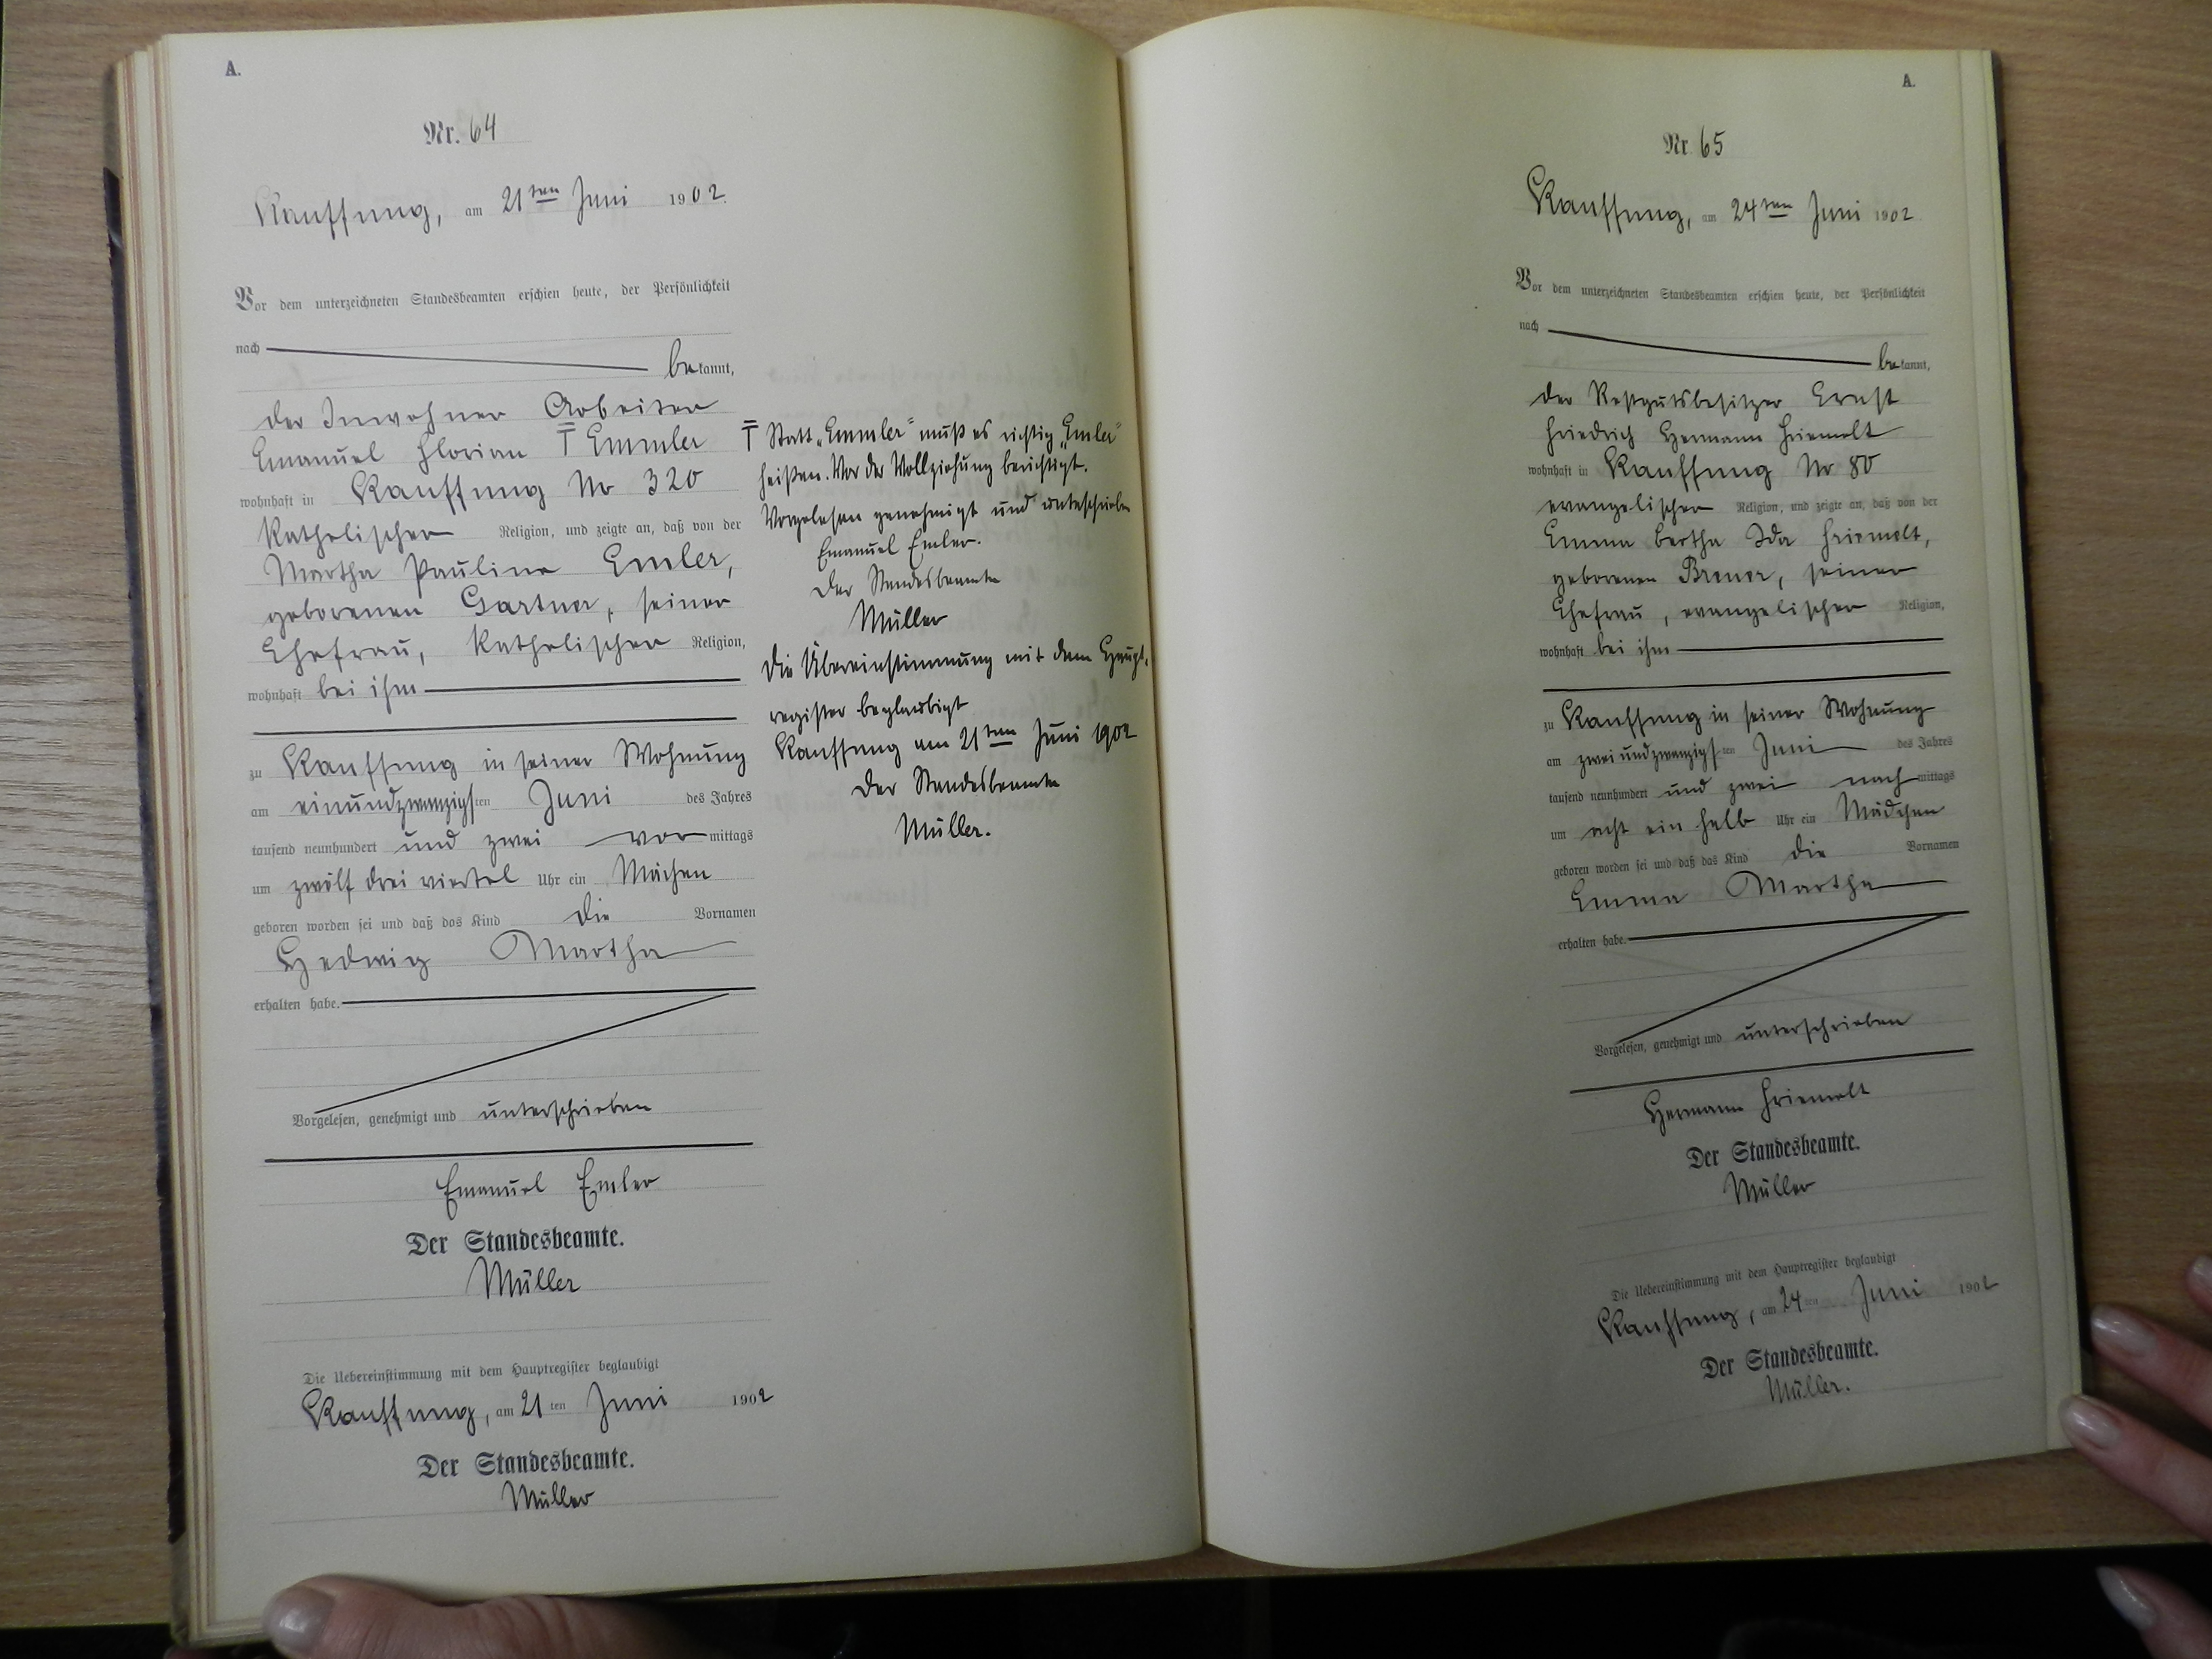 A.
Nr. 64
Kauffung, am 21ten Juni 1902.
Vor dem unterzeichneten Standesbeamten erschien heute, der Persönlichkeit
nach
bekannt,
der Inwohner Arbeiter
Emanuel Florian ∓ Emmler
wohnhaft in Kauffung No 320
katholischer Religion, und zeigte an, daß von der
Martha Pauline Emler,
geborenen Gartner, seiner
Ehefrau, katholischer Religion,
wohnhaft bei ihm
zu Kauffung in seiner Wohnung
am einundzwanzigsten Juni des Jahres
tausend neunhundert und zwei vormittags
um zwölf drei viertel Uhr ein Mächen
geboren worden sei und daß das Kind die Vornamen
Hedwig Martha
erhalten habe.
Vorgelesen, genehmigt und unterschrieben
Emanuel Emler
Der Standesbeamte.
Müller
Die Uebereinstimmung mit dem Hauptregister beglaubigt
Kauffung, am 21ten Juni 1902
Der Standesbeamte.
Müller
∓ Statt „Emmler" muß es richtig „Emler"
heißen. Vor der Vollziehung berichtigt.
Vorgelesen genehmigt und unterschrieben
Emanuel Emler.
Der Standesbeamte
Müller
Die Übereinstimmung mit dem Haupt-
register beglaubigt
Kauffung am 21ten Juni 1902
Der Standesbeamte
Müller.
A.
Nr 65
Kauffung, am 24ten Juni 1902.
Vor dem unterzeichneten Standesbeamten erschien heute, der Persönlichkeit
nach
bekannt,
der Restgutsbesitzer Ernst
Friedrich Hermann Friemelt
wohnhaft in Kauffung No 80
evangelischer Religion, und zeigte an, daß von der
Emma Bertha Ida Friemelt,
geborenen Brener, seiner
Ehefrau, evangelischer Religion,
wohnhaft bei ihm
zu Kauffung in seiner Wohnung
am zweiundzwanzigsten Juni des Jahres
tausend neunhundert und zwei nachmittags
um acht ein halb Uhr ein Mädchen
geboren worden sei und daß das Kind die Vornamen
Emma Martha
erhalten habe.
Vorgelesen, genehmigt und unterschrieben
Hermann Friemelt
Der Standesbeamte.
Müller
Die Uebereinstimmung mit dem Hauptregister beglaubigt
Kauffung, am 24ten Juni 1902
Der Standesbeamte.
Müller.